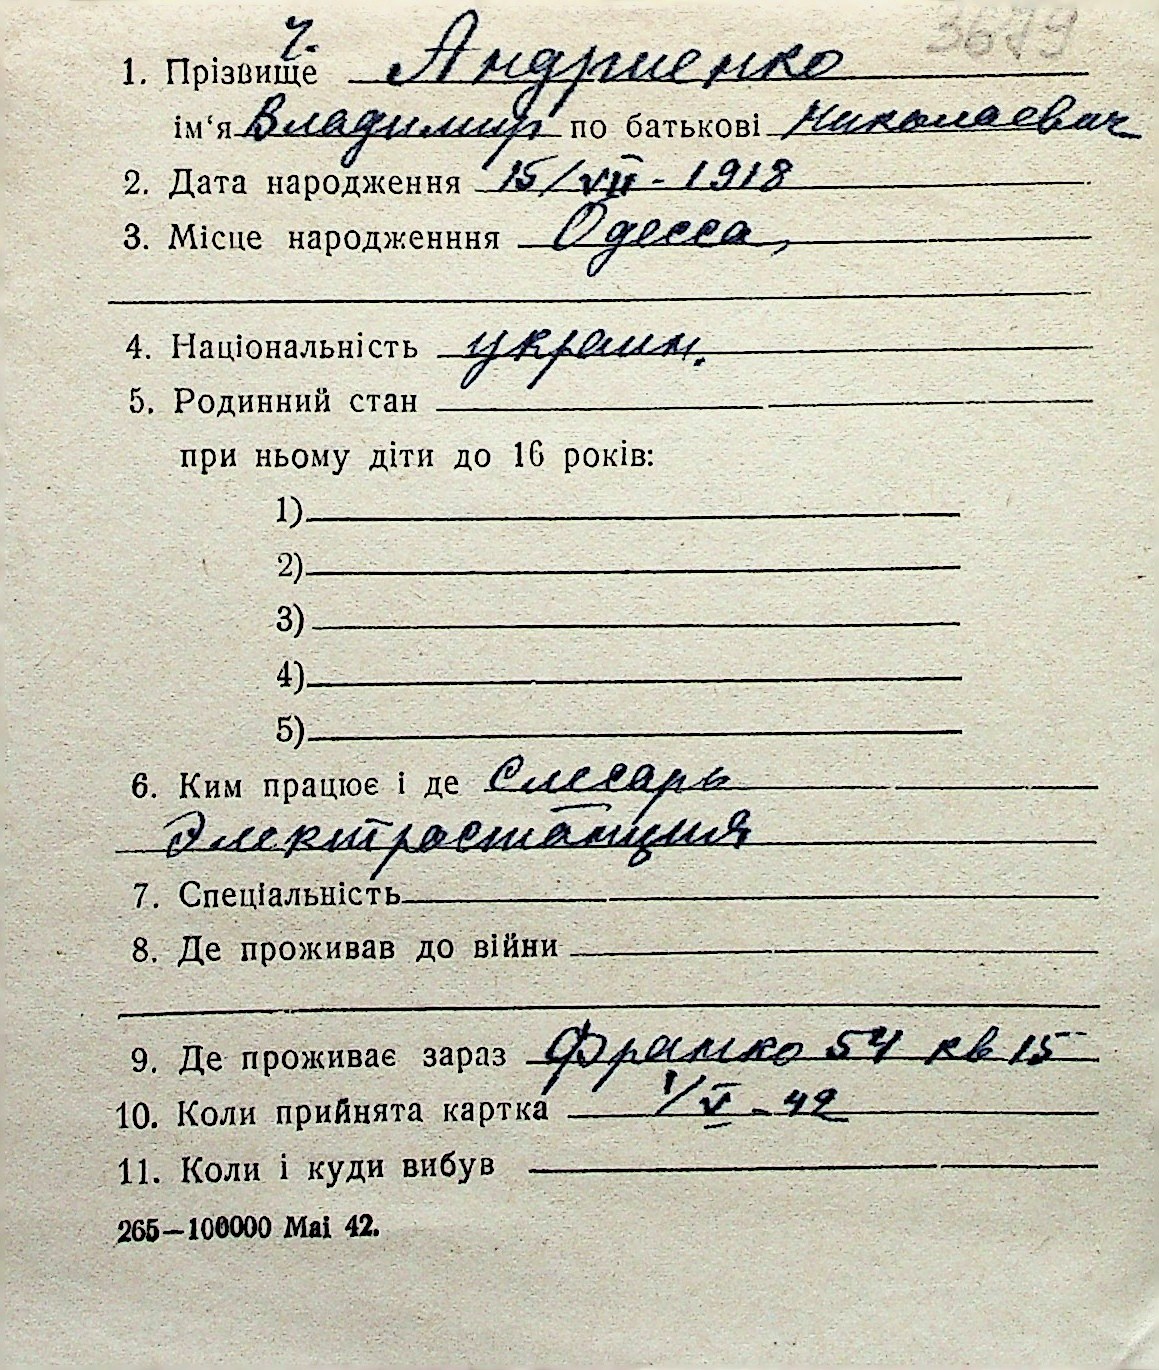 3679
ч.
1. Прізвище Андриенко
ім‘я Владимир по батькові Николаевич
2. Дата народження 15/VII - 1918
3. Місце народженння Одесса,
4. Національність украин.
5. Родинний стан
при ньому діти до 16 років:
1)
2)
3)
4)
5)
6. Ким працює і де Слесарь
Электростанция
7. Спеціальність
8. Де проживав до війни
9. Де проживає зараз Франко 54 кв 15
10. Коли прийнята картка 1/V - 42
11. Коли і куди вибув
265—100000 Mai 42.